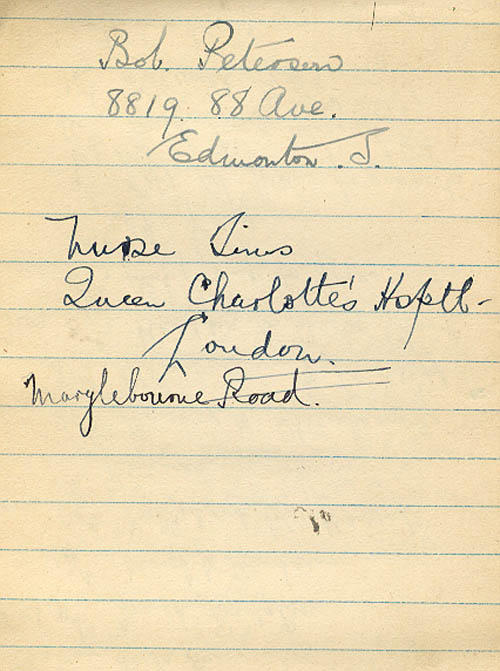 Bob. Peterson
8819 88 Ave.
Edmonton. S.
Nurse Sims
Queen Charlotte's Hsptl-
London.
Marylebourne Road.